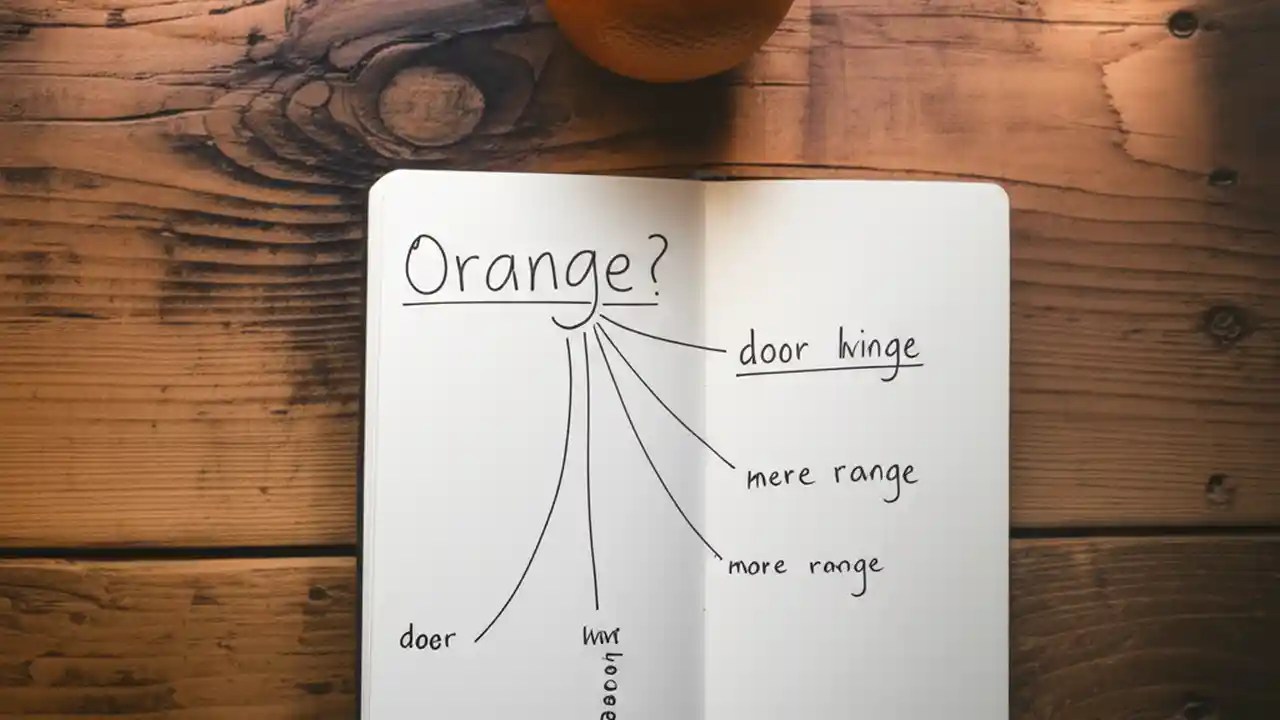 Orange?
door hinge
mere range
more range
doer